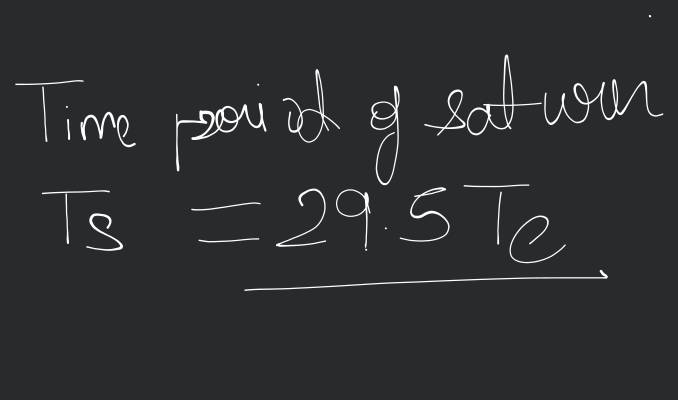 Time period of saturn
Ts = 29.5 Te